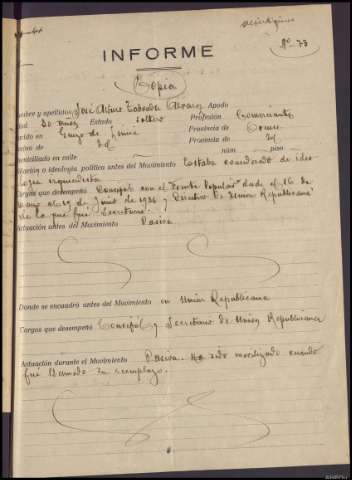 Nº 73
INFORME
Copia
Nombre y apellidos José Alvarez Apodo
Edad 30 años Estado soltero Profesión Comerciante
Ginzo de Limia Provincia de Orense
Vecino de Id Provincia de Id
Domiciliado en calle núm. piso
Filiación o ideología política antes del Movimiento Estaba considerado de ideo-
logía izquierdista
Cargos que desempeñó Concejal con el Frente Popular desde el 16 de
Mayo al 19 de Junio de 1936 y Directivo de Unión Republicana
de la que fué Secretario
Actuación antes del Movimiento Pasiva
Donde se encuadró antes del Movimiento en Unión Republicana
Cargos que desempeñó Concejal y Secretario de Unión Republicana
Actuación durante el Movimiento Pasiva. Ha sido movilizado cuando
fué llamado su reemplazo.